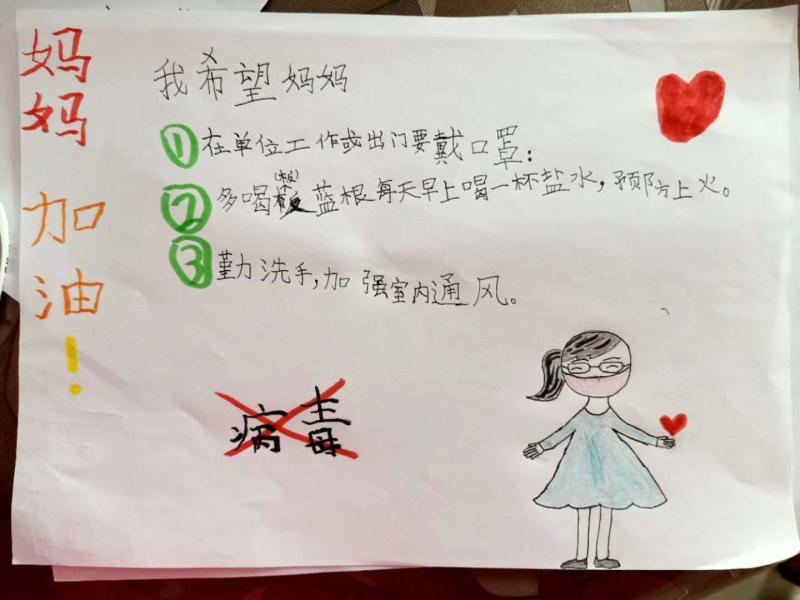 妈妈加油！
我希望妈妈
①在单位工作或出门要戴口罩：
②多喝板(板)蓝根每天早上喝一杯盐水，预防上火。
③勤洗手，加强室内通风。
病毒